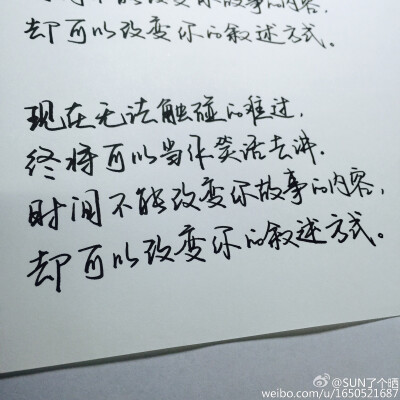 时间不能改变你故事的内容,
却可以改变你的叙述方式。
现在无法触碰的难过,
终将可以当作笑话去讲.
时间不能改变你故事的内容,
却可以改变你的叙述方式。
@SUN了个晒
weibo.com/u/1650521687